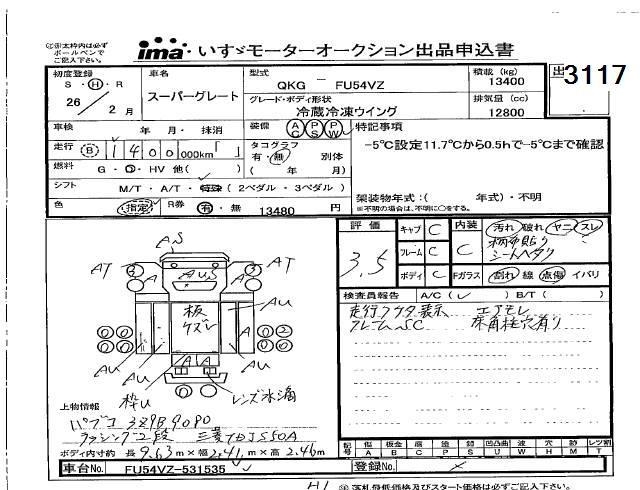 ㊟※太枠内は必ず
ボールペンで
ご記入下さい。
ima・いすゞモーターオークション出品申込書
初度登録 S・H・R 26年 2月
車名 スーパーグレート
型式 QKG - FU54VZ
積載 (kg) 13400
3117
グレード・ボディ形状 冷蔵冷凍ウイング
排気量 (cc) 12800
車検 年 月・抹消
装備 AC PS PW
特記事項
走行 (B) 1400 000km「 」
タコグラフ 有・無 別体 ( 年 月)
-5℃設定11.7℃から0.5hで-5℃まで確認
燃料 G・D・HV 他( )
シフト M/T・A/T・特殊(2ペダル・3ペダル)
架装物年式:( 年式)・不明
※不明の場合は、不明に○をする。
色 (指定) R券 有・無 13480 円
評価 3.5
キャブ C
フレーム C
ボディ C
内装 C
汚れ 破れ ヤニ スレ
柄布貼り
シートヘタリ
Fガラス 割れ 線 点傷 イバリ
検査員報告 A/C( ✓ )・B/T( )
表示 エアモレ
フレームSC 床角柱穴有り
AS
AT AT
A AUS A
板
ケズレ
AU
A A
AU AU AU
A A
AU
枠U
レンズ水滴
上物情報
パブコ
ラッシング2段 三菱TDJS50A
ボディ内寸約 長 9.63 m×幅 2.41 m×高 2.46 m
記号 傷 A 板金 B 腐 C 塗 P 錆 S 凹凸曲 U 波 W 穴 H 跡 M レツ割 T
車台No. FU54VZ-531535
登録No.